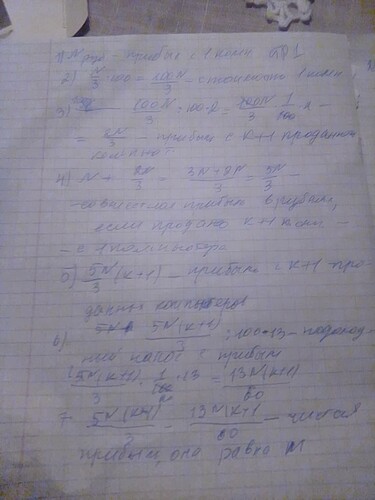 1) N руб - прибыль с 1 комп
2) N/3 · 100 = 100N/3 - стоимость 1 комп
3) 100N/3 : 100·2 = 200N/3 · 1/100 =
= 2N/3 - прибыль с k+1 проданно
4) N + 2N/3 = 3N+2N/3 = 5N/3 -
прибыль в рублях,
если продано k+1 комп -
с 1 компьютера
5) 5N/3 (k+1) - прибыль с k+1 про
данных компьютеров
6) 5N(k+1)/3 : 100·13 - подоход
ный налог с прибыли
5N(k+1)/3 · 1/100 · 13 = 13N(k+1)/60
7 5N(k+1)/3 - 13N(k+1/60 - чистая
прибыль, она равна M